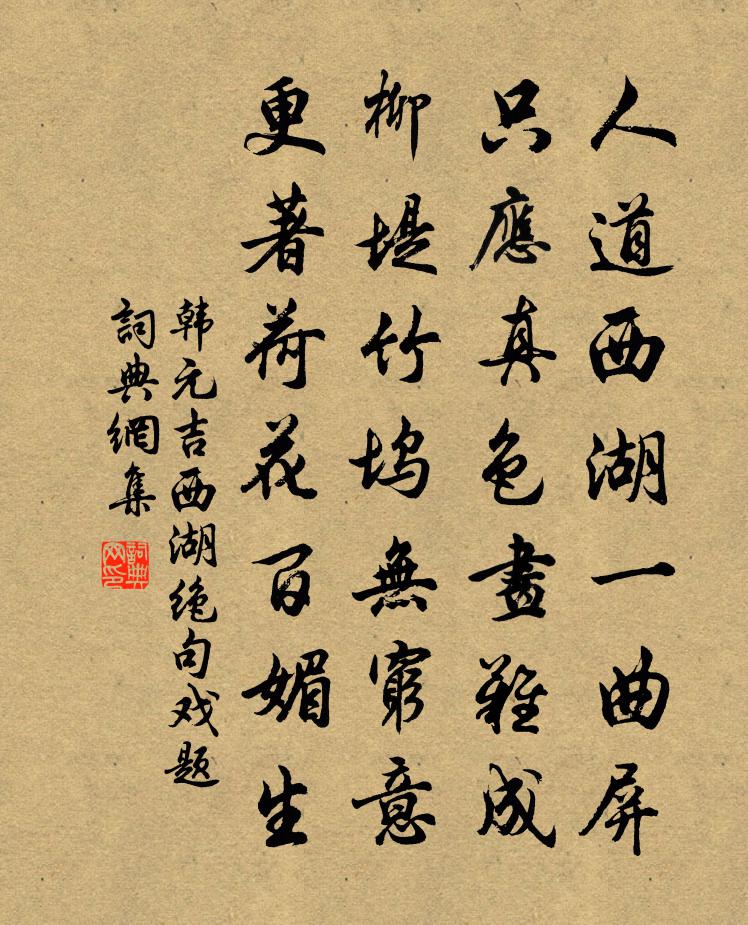 人道西湖一曲屏
只應真色畫難成
柳堤竹塢無窮意
更著荷花百媚生
韩元吉西湖绝句戏题
詞典網集
詞典网印